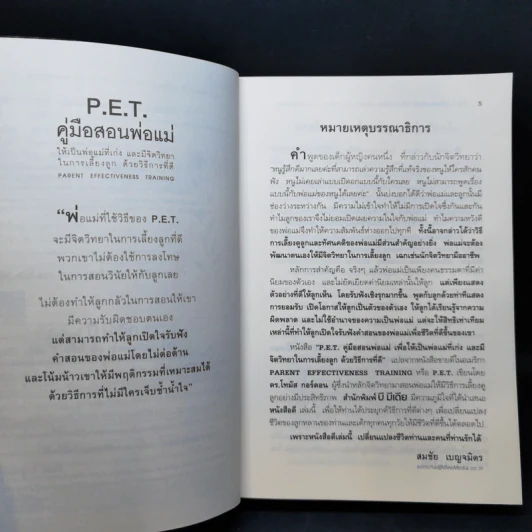 P.E.T.
คู่มือสอนพ่อแม่
ให้เป็นพ่อแม่ที่เก่ง และมีจิตวิทยา
ในการเลี้ยงลูก ด้วยวิธีการที่ดี
PARENT EFFECTIVENESS TRAINING
"พ่อแม่ที่ใช้วิธีของ P.E.T.
จะมีจิตวิทยาในการเลี้ยงลูกที่ดี
พวกเขาไม่ต้องใช้การลงโทษ
ในการสอนวินัยให้กับลูกเลย
ไม่ต้องทำให้ลูกกลัวในการสอนให้เขา
มีความรับผิดชอบตนเอง
แต่สามารถทำให้ลูกเปิดใจรับฟัง
คำสอนของพ่อแม่โดยไม่ต่อต้าน
และโน้มน้าวเขาให้มีพฤติกรรมที่เหมาะสมได้
ด้วยวิธีการที่ไม่มีใครเจ็บช้ำน้ำใจ"
5
หมายเหตุบรรณาธิการ
คำพูดของเด็กผู้หญิงคนหนึ่ง ที่กล่าวกับนักจิตวิทยาว่า
"หนูรู้สึกดีมากเลยค่ะที่สามารถเล่าความรู้สึกที่แท้จริงของหนูให้ใครสักคน
ฟัง หนูไม่เคยเล่าแบบเปิดอกแบบนี้กับใครเลย หนูไม่สามารถพูดเรื่อง
แบบนี้กับพ่อแม่ของหนูได้เลยค่ะ" นั่นบ่งบอกได้ดีว่าพ่อแม่และลูกนั้นมี
ช่องว่างระหว่างกัน มีความไม่เข้าใจทำให้ไม่มีการเปิดใจซึ่งกันและกัน
ทำไมลูกของเราจึงไม่ยอมเปิดเผยความในใจกับพ่อแม่ ทำไมความหวังดี
ของพ่อแม่จึงทำให้ความสัมพันธ์ห่างออกไปทุกที ทั้งนี้อาจกล่าวได้ว่าวิธี
การเลี้ยงดูลูกและทัศนคติของพ่อแม่มีส่วนสำคัญอย่างยิ่ง พ่อแม่จะต้อง
พัฒนาตนเองให้มีจิตวิทยาในการเลี้ยงลูก เฉกเช่นนักจิตวิทยามืออาชีพ
หลักการสำคัญคือ จริงๆ แล้วพ่อแม่เป็นเพียงคนธรรมดาที่มีค่า
นิยมของตัวเอง และไม่ยัดเยียดค่านิยมเหล่านั้นให้ลูก แต่เพียงแสดง
ตัวอย่างที่ดีให้ลูกเห็น โดยรับฟังเชิงรุกมากขึ้น พูดกับลูกด้วยท่าทีแสดง
การยอมรับ เปิดโอกาสให้ลูกเป็นตัวของตัวเอง ให้ลูกได้เรียนรู้จากความ
ผิดพลาด และไม่ใช้อำนาจของความเป็นพ่อแม่ แต่จะให้สิทธิเท่าเทียม
เหล่านี้ที่ทำให้ลูกเปิดใจรับฟังคำสอนของพ่อแม่เพื่อชีวิตที่ดีขึ้นของเขา
หนังสือ "P.E.T. คู่มือสอนพ่อแม่ เพื่อให้เป็นพ่อแม่ที่เก่ง และมี
จิตวิทยาในการเลี้ยงลูก ด้วยวิธีการที่ดี" แปลจากหนังสือขายดีในอเมริกา
PARENT EFFECTIVENESS TRAINING หรือ P.E.T. เขียนโดย
ดร.โทมัส กอร์ดอน ผู้ซึ่งนำหลักจิตวิทยามาสอนพ่อแม่ให้มีวิธีการเลี้ยงดู
ลูกอย่างมีประสิทธิภาพ สำนักพิมพ์ บี มีเดีย มีความภูมิใจที่ได้นำเสนอ
หนังสือดี เล่มนี้ เพื่อให้ท่านได้ประยุกต์วิธีการที่ดีต่างๆ เพื่อเปลี่ยนแปลง
ชีวิตของลูกหลานของท่านและเด็กทุกคนทุกวัยให้มีชีวิตที่ดีขึ้นได้ตลอดไป
เพราะหนังสือดีเล่มนี้ เปลี่ยนแปลงชีวิตท่านและคนที่ท่านรักได้
สมชัย เบญจมิตร